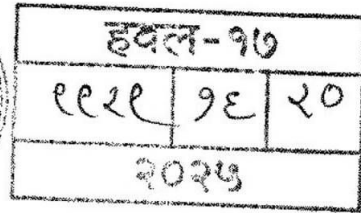 हवल-१७
११२१ १६ २०
२०२५